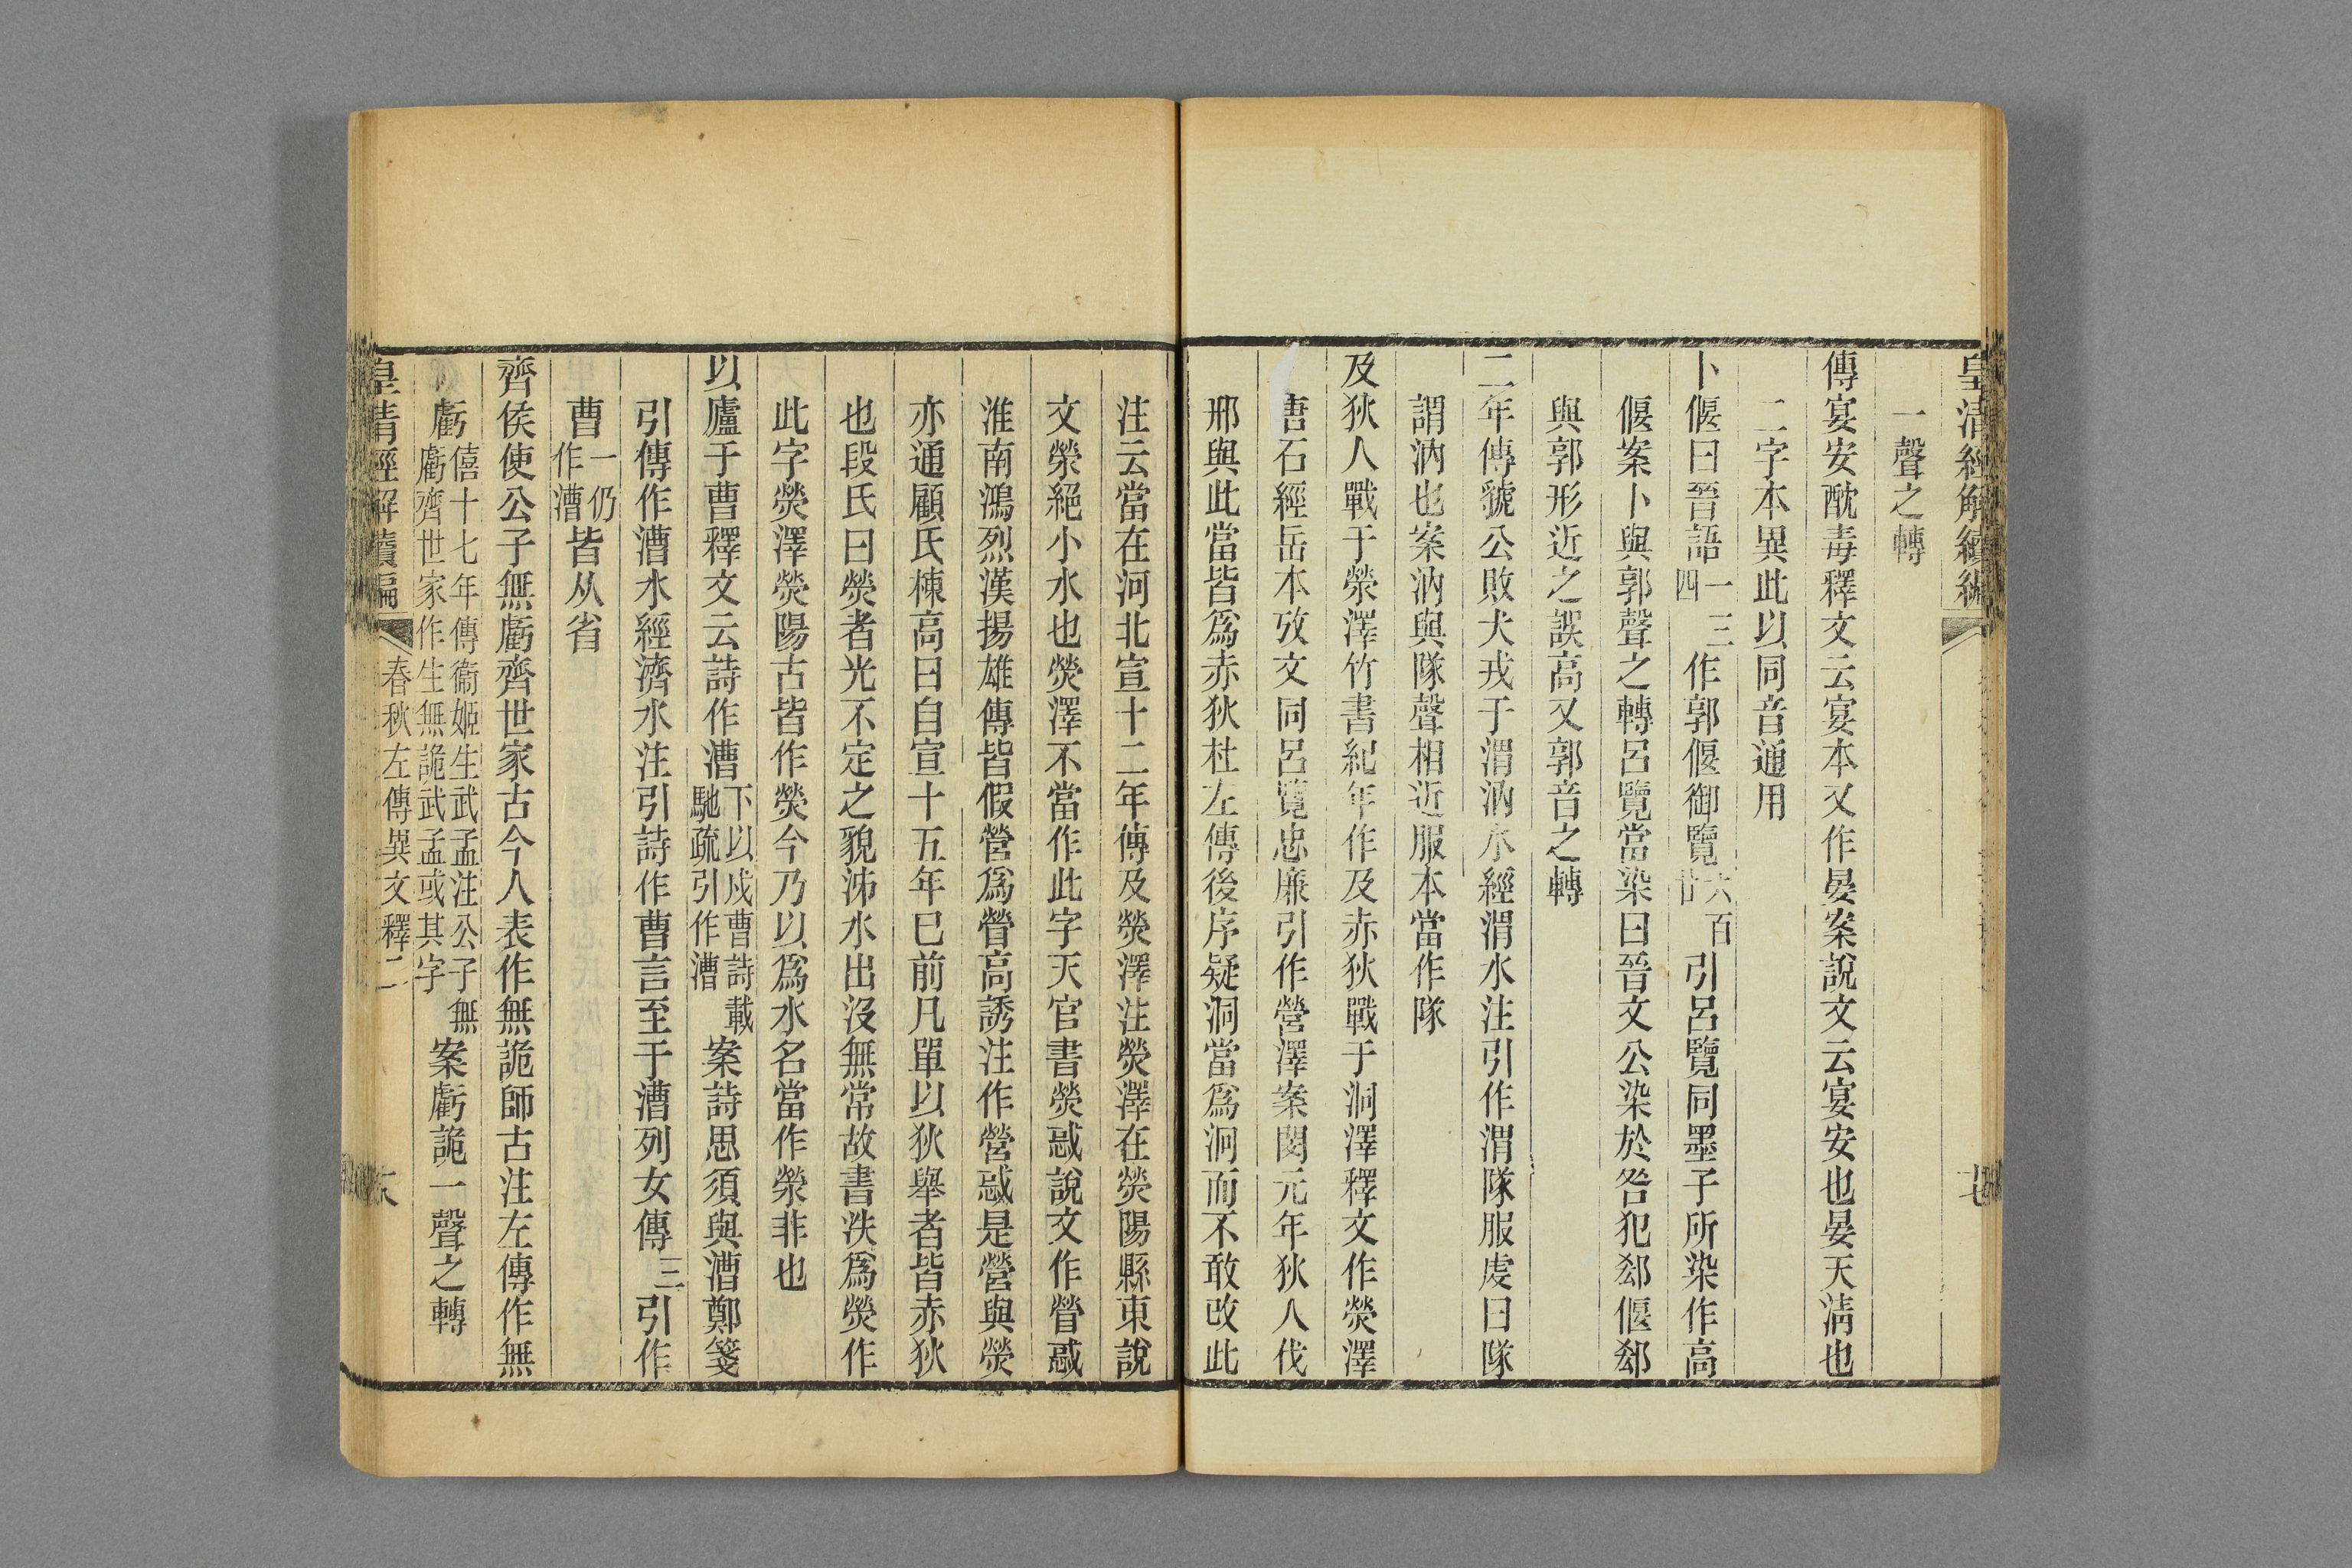 皇清經解續編
一聲之轉
傳宴安酖毒釋文云宴本又作晏案說文云宴安也晏天淸也
二字本異此以同音通用
卜偃曰晉語一三四作郭偃御覽六百廿引呂覽同墨子所染作高
偃案卜與郭聲之轉呂覽當染曰晉文公染於咎犯郄偃郄
與郭形近之誤高又郭音之轉
二年傳虢公敗犬戎于渭汭水經渭水注引作渭隊服虔曰隊
謂汭也案汭與隊聲相近服本當作隊
及狄人戰于滎澤竹書紀年作及赤狄戰于洞澤釋文作熒澤
唐石經岳本攷文同呂覽忠廉引作營澤案閔元年狄人伐
邢與此當皆爲赤狄杜左傳後序疑洞當爲泂而不敢改此
注云當在河北宣十二年傳及熒澤注熒澤在熒陽縣東說
文滎絕小水也熒澤不當作此字天官書熒惑說文作䁝惑
淮南鴻烈漢揚雄傳皆假營爲䁝高誘注作營惑是營與熒
亦通顧氏棟高曰自宣十五年巳前凡單以狄舉者皆赤狄
也段氏曰熒者光不定之貌泲水出沒無常故書泆爲熒作
此字熒澤熒陽古皆作熒今乃以爲水名當作滎非也
以廬于曹釋文云詩作漕下以戍曹詩載馳疏引作漕案詩思須與漕鄭箋
引傳作漕水經濟水注引詩作曹言至于漕列女傳三引作
曹一仍作漕皆从省
齊侯使公子無虧齊世家古今人表作無詭師古注左傳作無
虧僖十七年傳衞姬生武孟注公子無虧齊世家作生無詭武孟或其字案虧詭一聲之轉
皇清經解續編
春秋左傳異文釋二